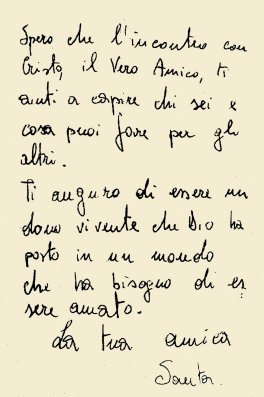 Spero che l'incontro con
Cristo, il Vero Amico, ti
aiuti a capire chi sei e
cosa puoi fare per gli
altri.
Ti auguro di essere un
dono vivente che Dio ha
posto in un mondo
che ha bisogno di es
sere amato.
La tua amica
Santa.